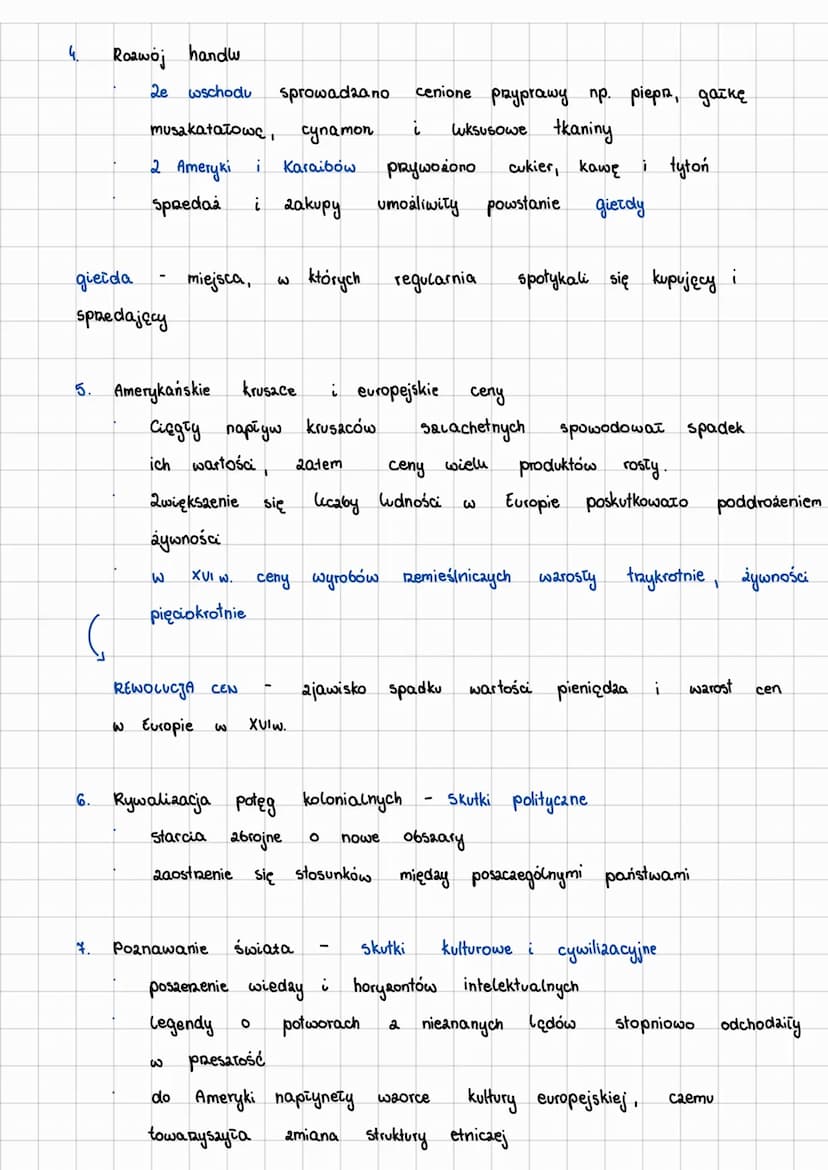 4. Rozwój handlu
· Ze wschodu sprowadzano cenione przyprawy np. pieprz, gałkę
muszkatałową, cynamon i luksusowe tkaniny
· Z Ameryki i Karaibów przywożono cukier, kawę i tytoń
· sprzedaż i zakupy umożliwiły powstanie giełdy
giełda - miejsca, w których regularnia spotykali się kupujęcy i
sprzedajęcy
5. Amerykańskie kruszce i europejskie ceny
· Ciągły napływ kruszców szlachetnych spowodował spadek
ich wartości, zatem ceny wielu produktów rosły.
· Zwiększenie się liczby ludności w Europie poskutkowało poddrożeniem
żywności
· w XVI w. ceny wyrobów rzemieślniczych wzrosły trzykrotnie, żywności
pięciokrotnie
REWOLUCJA CEN - zjawisko spadku wartości pieniędza i wzrost cen
w Europie w XVIw.
6. Rywalizacja potęg kolonialnych - skutki polityczne
· starcia zbrojne o nowe obszary
· zaostrzenie się stosunków między poszczególnymi państwami
7. Poznawanie świata - skutki kulturowe i cywilizacyjne
· poszerzenie wiedzy i horyzontów intelektualnych
· Legendy o potworach z nieznanych lądów stopniowo odchodziły
w przeszłość
· do Ameryki napłynęły wzorce kultury europejskiej, czemu
towarzyszyła zmiana struktury etniczej